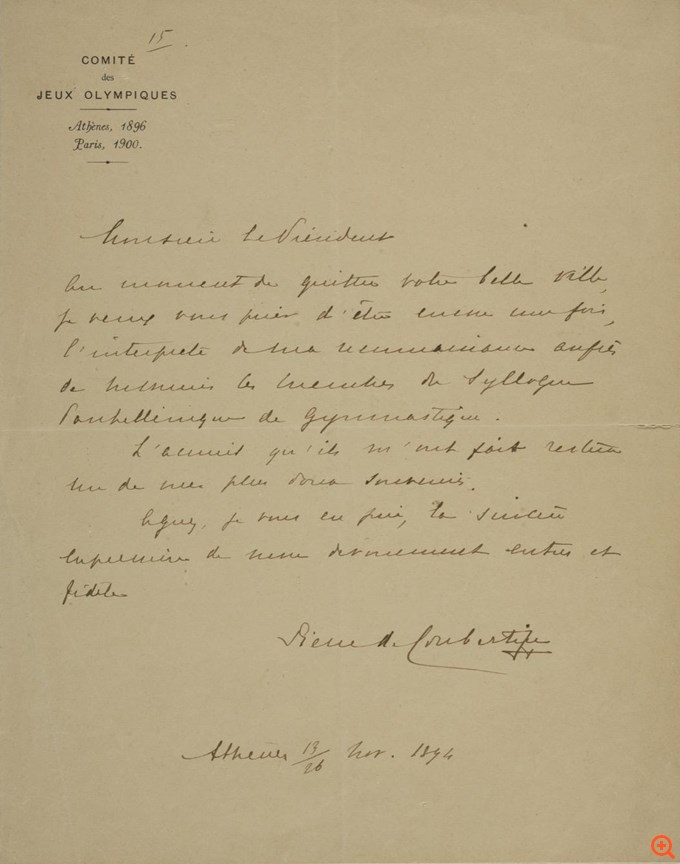 15
COMITÉ
des
JEUX OLYMPIQUES
Athènes, 1896
Paris, 1900.
Monsieur le Président
Au moment de quitter votre belle ville,
je veux vous prier d'être encore une fois,
l'interprète de ma reconnaissance auprès
de messieurs les membres du Syllogue
Panhellénique de Gymnastique.
L'accueil qu'ils m'ont fait restera
un de mes plus doux souvenirs.
Agréez, je vous en prie, la sincère
expression de mon dévouement entier et
fidèle
Pierre de Coubertin
Athènes 13/26 Nov. 1894